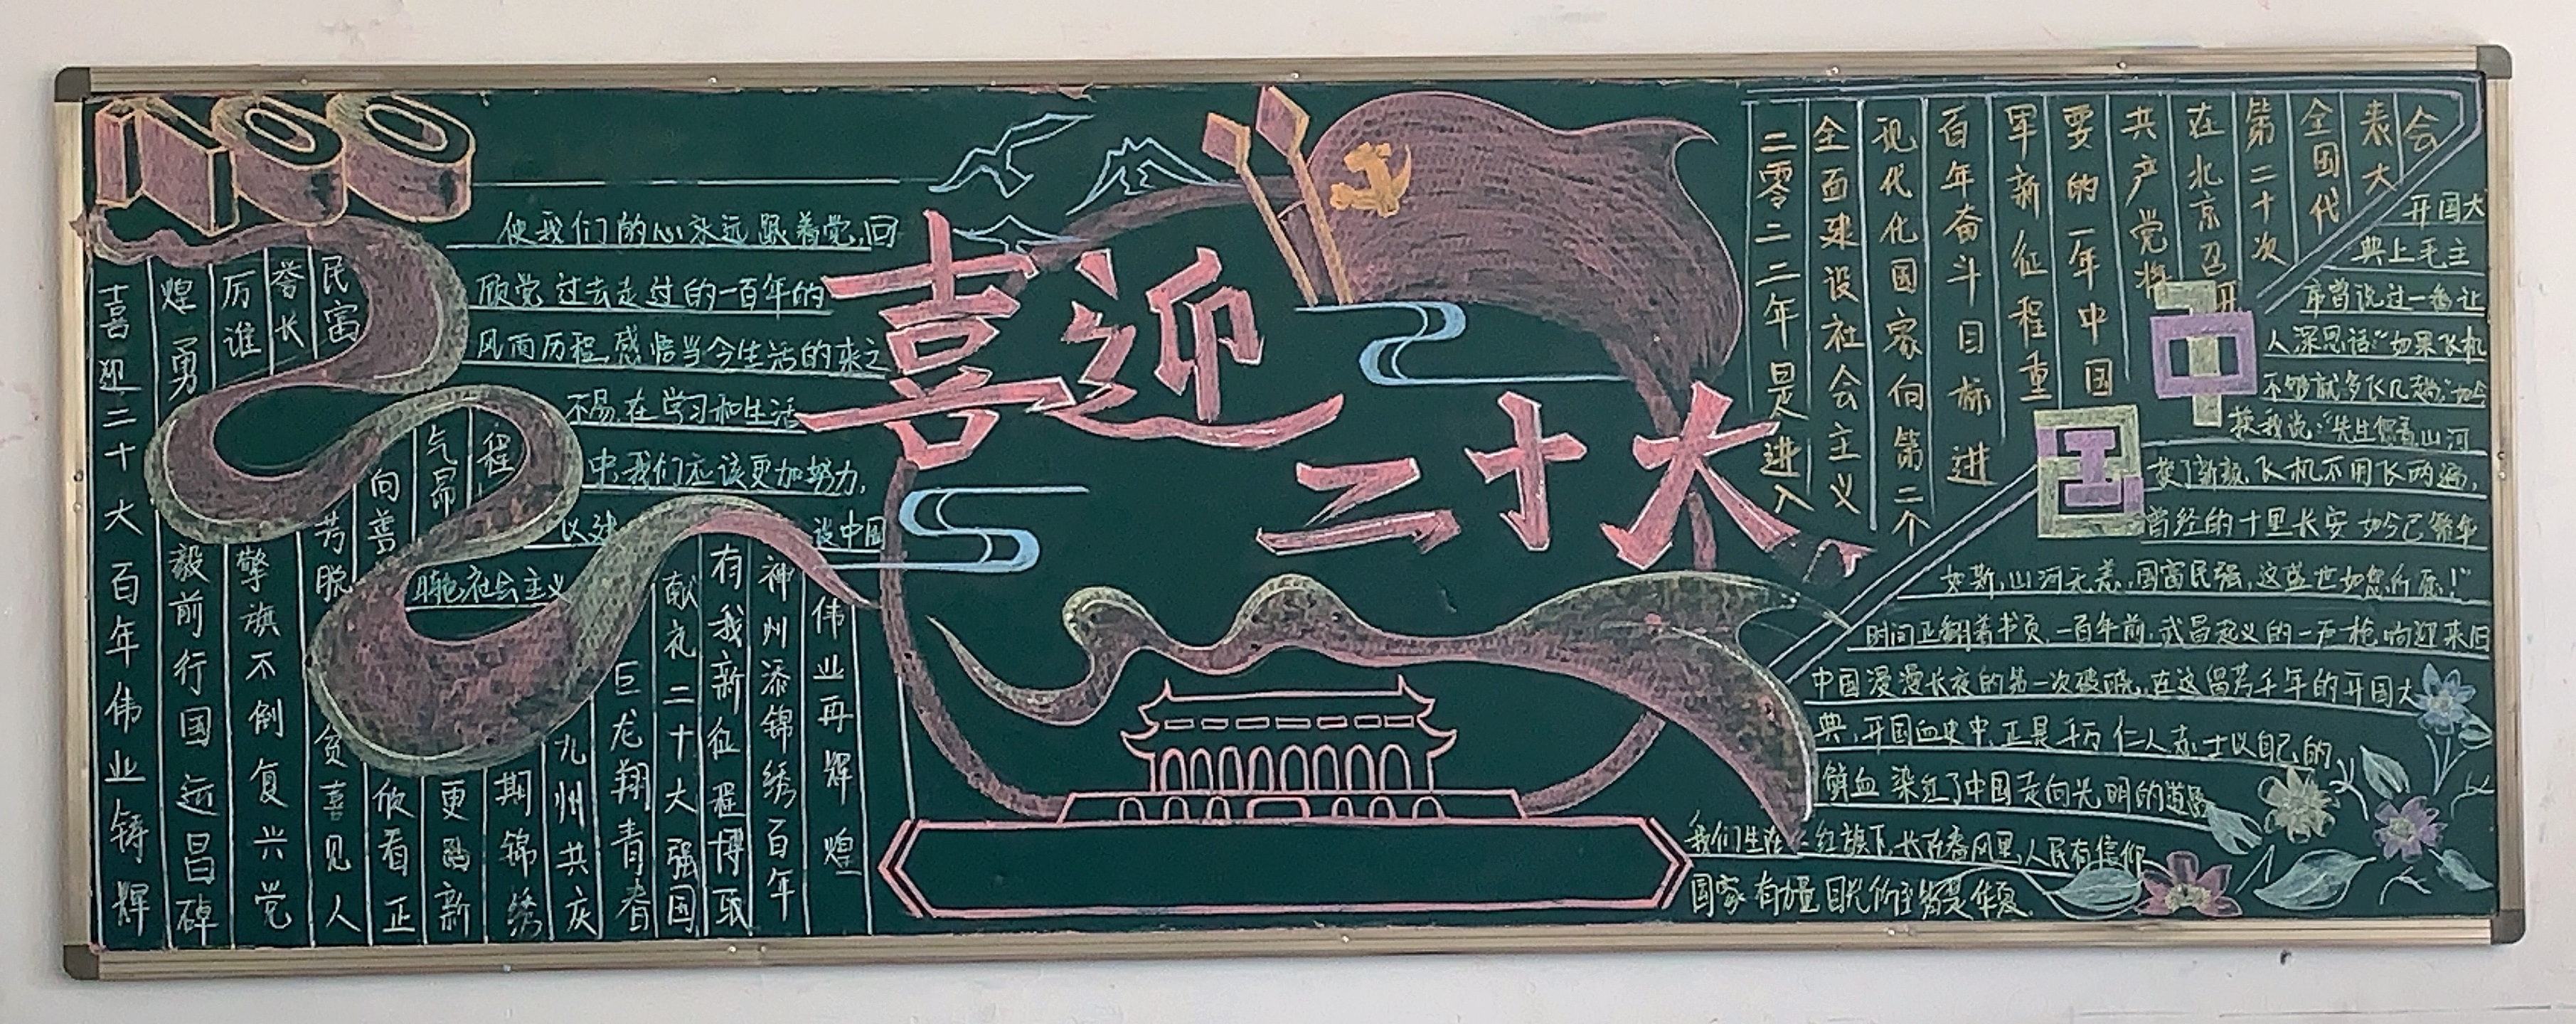 喜迎
二十大
100
使我们的心永远跟着党,回
顾党过去走过的一百年的
风雨历程,感悟当今生活的来之
不易,在学习和生活
中,我们应该更加努力,
以建
设中国
社会主义
喜迎二十大百年伟业铸辉
煌勇
毅前行国远昌碑
厉谁
擎旗不倒复兴党
誉长
民富
芳脱
贫喜见人
向善
欣看正
气昂
更新
程
期锦绣
九州共庆
巨龙翔青春
献礼二十大强国
有我新征程博取
神州添锦绣百年
伟业再辉煌
二零二二年是进入
全面建设社会主义
现代化国家向第二个
百年奋斗目标进
军新征程重
要的一年中国
共产党将
在北京召开
第二十次
全国代
表大
会
中
国
开国大
典上毛主
席曾说过一番让
人深思话:“如果飞机
不够就多飞几趟”如今
换我说:“先生您看山河
换了新颜,飞机不用飞两遍,
曾经的十里长安如今已繁华
如斯,山河无恙,国富民强,这盛世如您所愿!”
时间正翻着书页,一百年前,武昌起义的一声枪响迎来旧
中国漫漫长夜的第一次破晓,在这留芳千年的开国大
典,开国血史中,正是千万仁人志士以自己的
鲜血染红了中国走向光明的道路
我们生在红旗下,长在春风里,人民有信仰
国家有力量目光所至皆是华夏